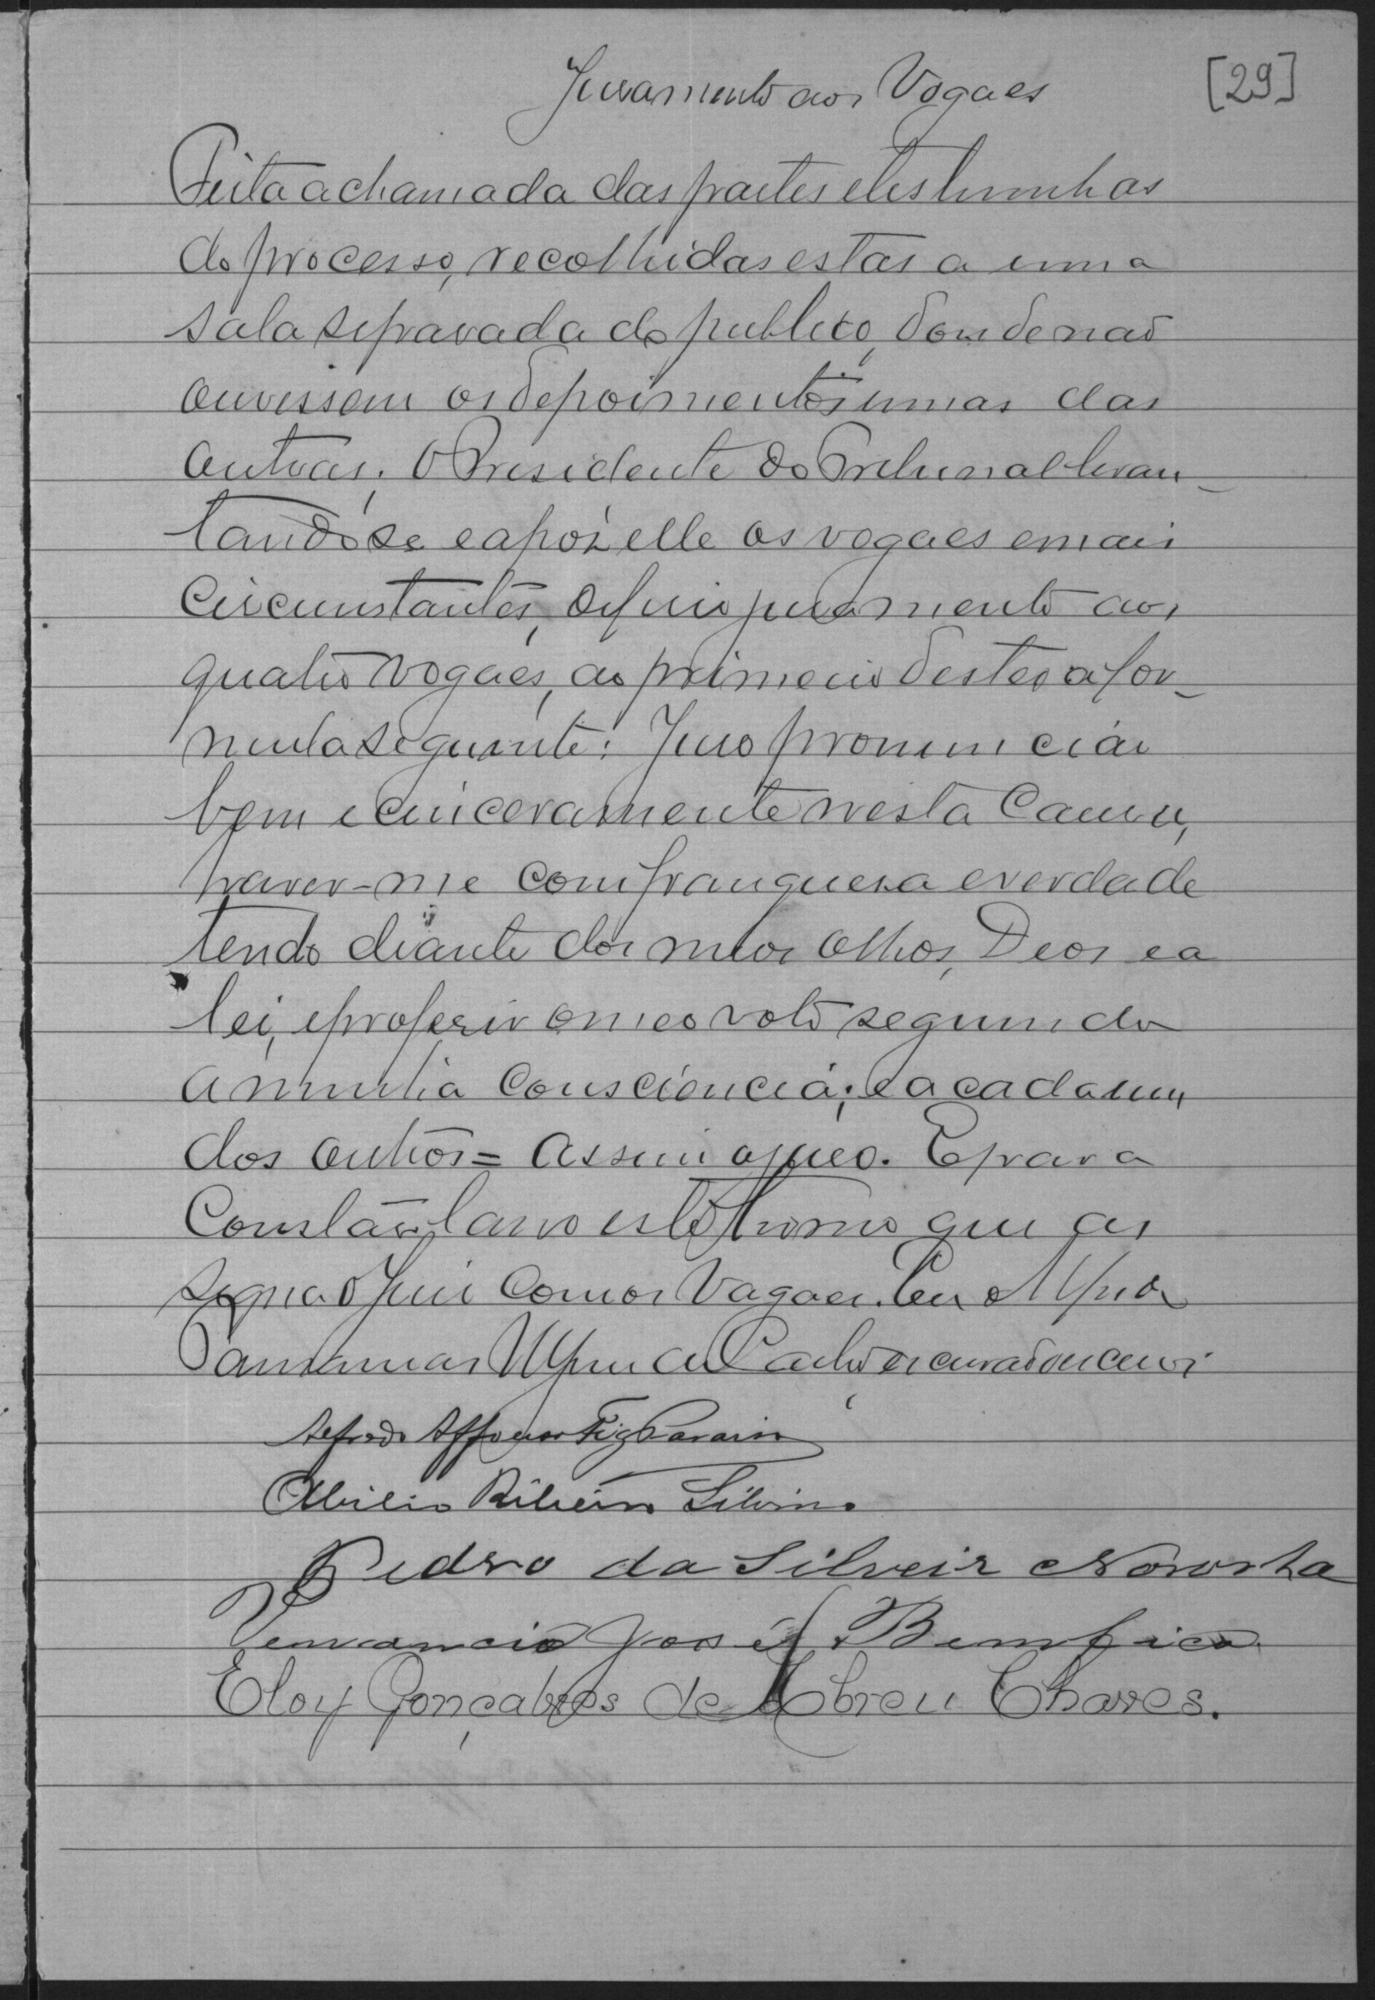 Juramento aos Vogaes
[29]
Feita a chamada das partes e testimunhas
do processo, recolhidas estas a uma
sala separada do publico, donde não
ouvissem os depoimentos umas das
outras; O Presidente do Tribunal levan-
tando se e após elle os vogaes e mais
circunstantes, deferio juramento aos
quatro vogaes, ao primeiro destes a for-
mula seguinte: Juro pronunciar
bem e cinceramente nesta Causa,
haver-me com franquesa e verdade
tendo diante dos meos olhos, Deos e a
lei, e proferir o meo voto segundo
a minha consciencia; e a cada um
dos outros = assim o juro. E para
Constar lavro este termo que as
signa o Juiz com os Vogaes. Eu
escrivão escrevi
Alfredo Affonso
Abilio Ribeiro Silvino
Pedro da Silveir Noronha
Venancio José Bemfica
Eloy Gonçalves de Abreu Chaves.